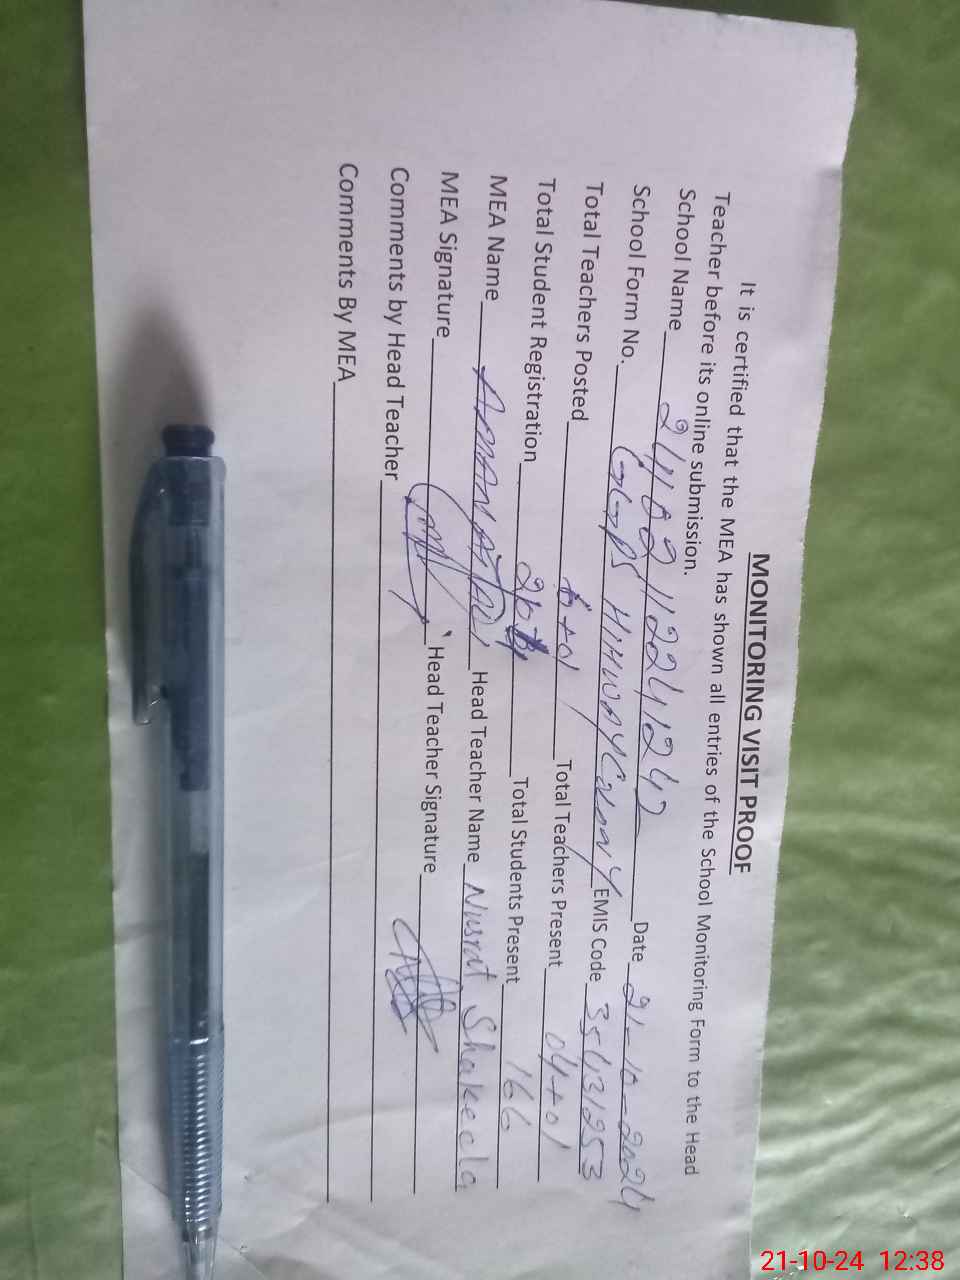 MONITORING VISIT PROOF
It is certified that the MEA has shown all entries of the School Monitoring Form to the Head
Teacher before its online submission.
School Name Date 21-10-2024
School Form No. GGPS HIHWAY COLONY EMIS Code 35431253
Total Teachers Posted 6+01 Total Teachers Present 04+01
Total Student Registration Total Students Present 166
MEA Name Head Teacher Name Nusrat Shakeela
MEA Signature Head Teacher Signature
Comments by Head Teacher
Comments By MEA
21-10-24 12:38